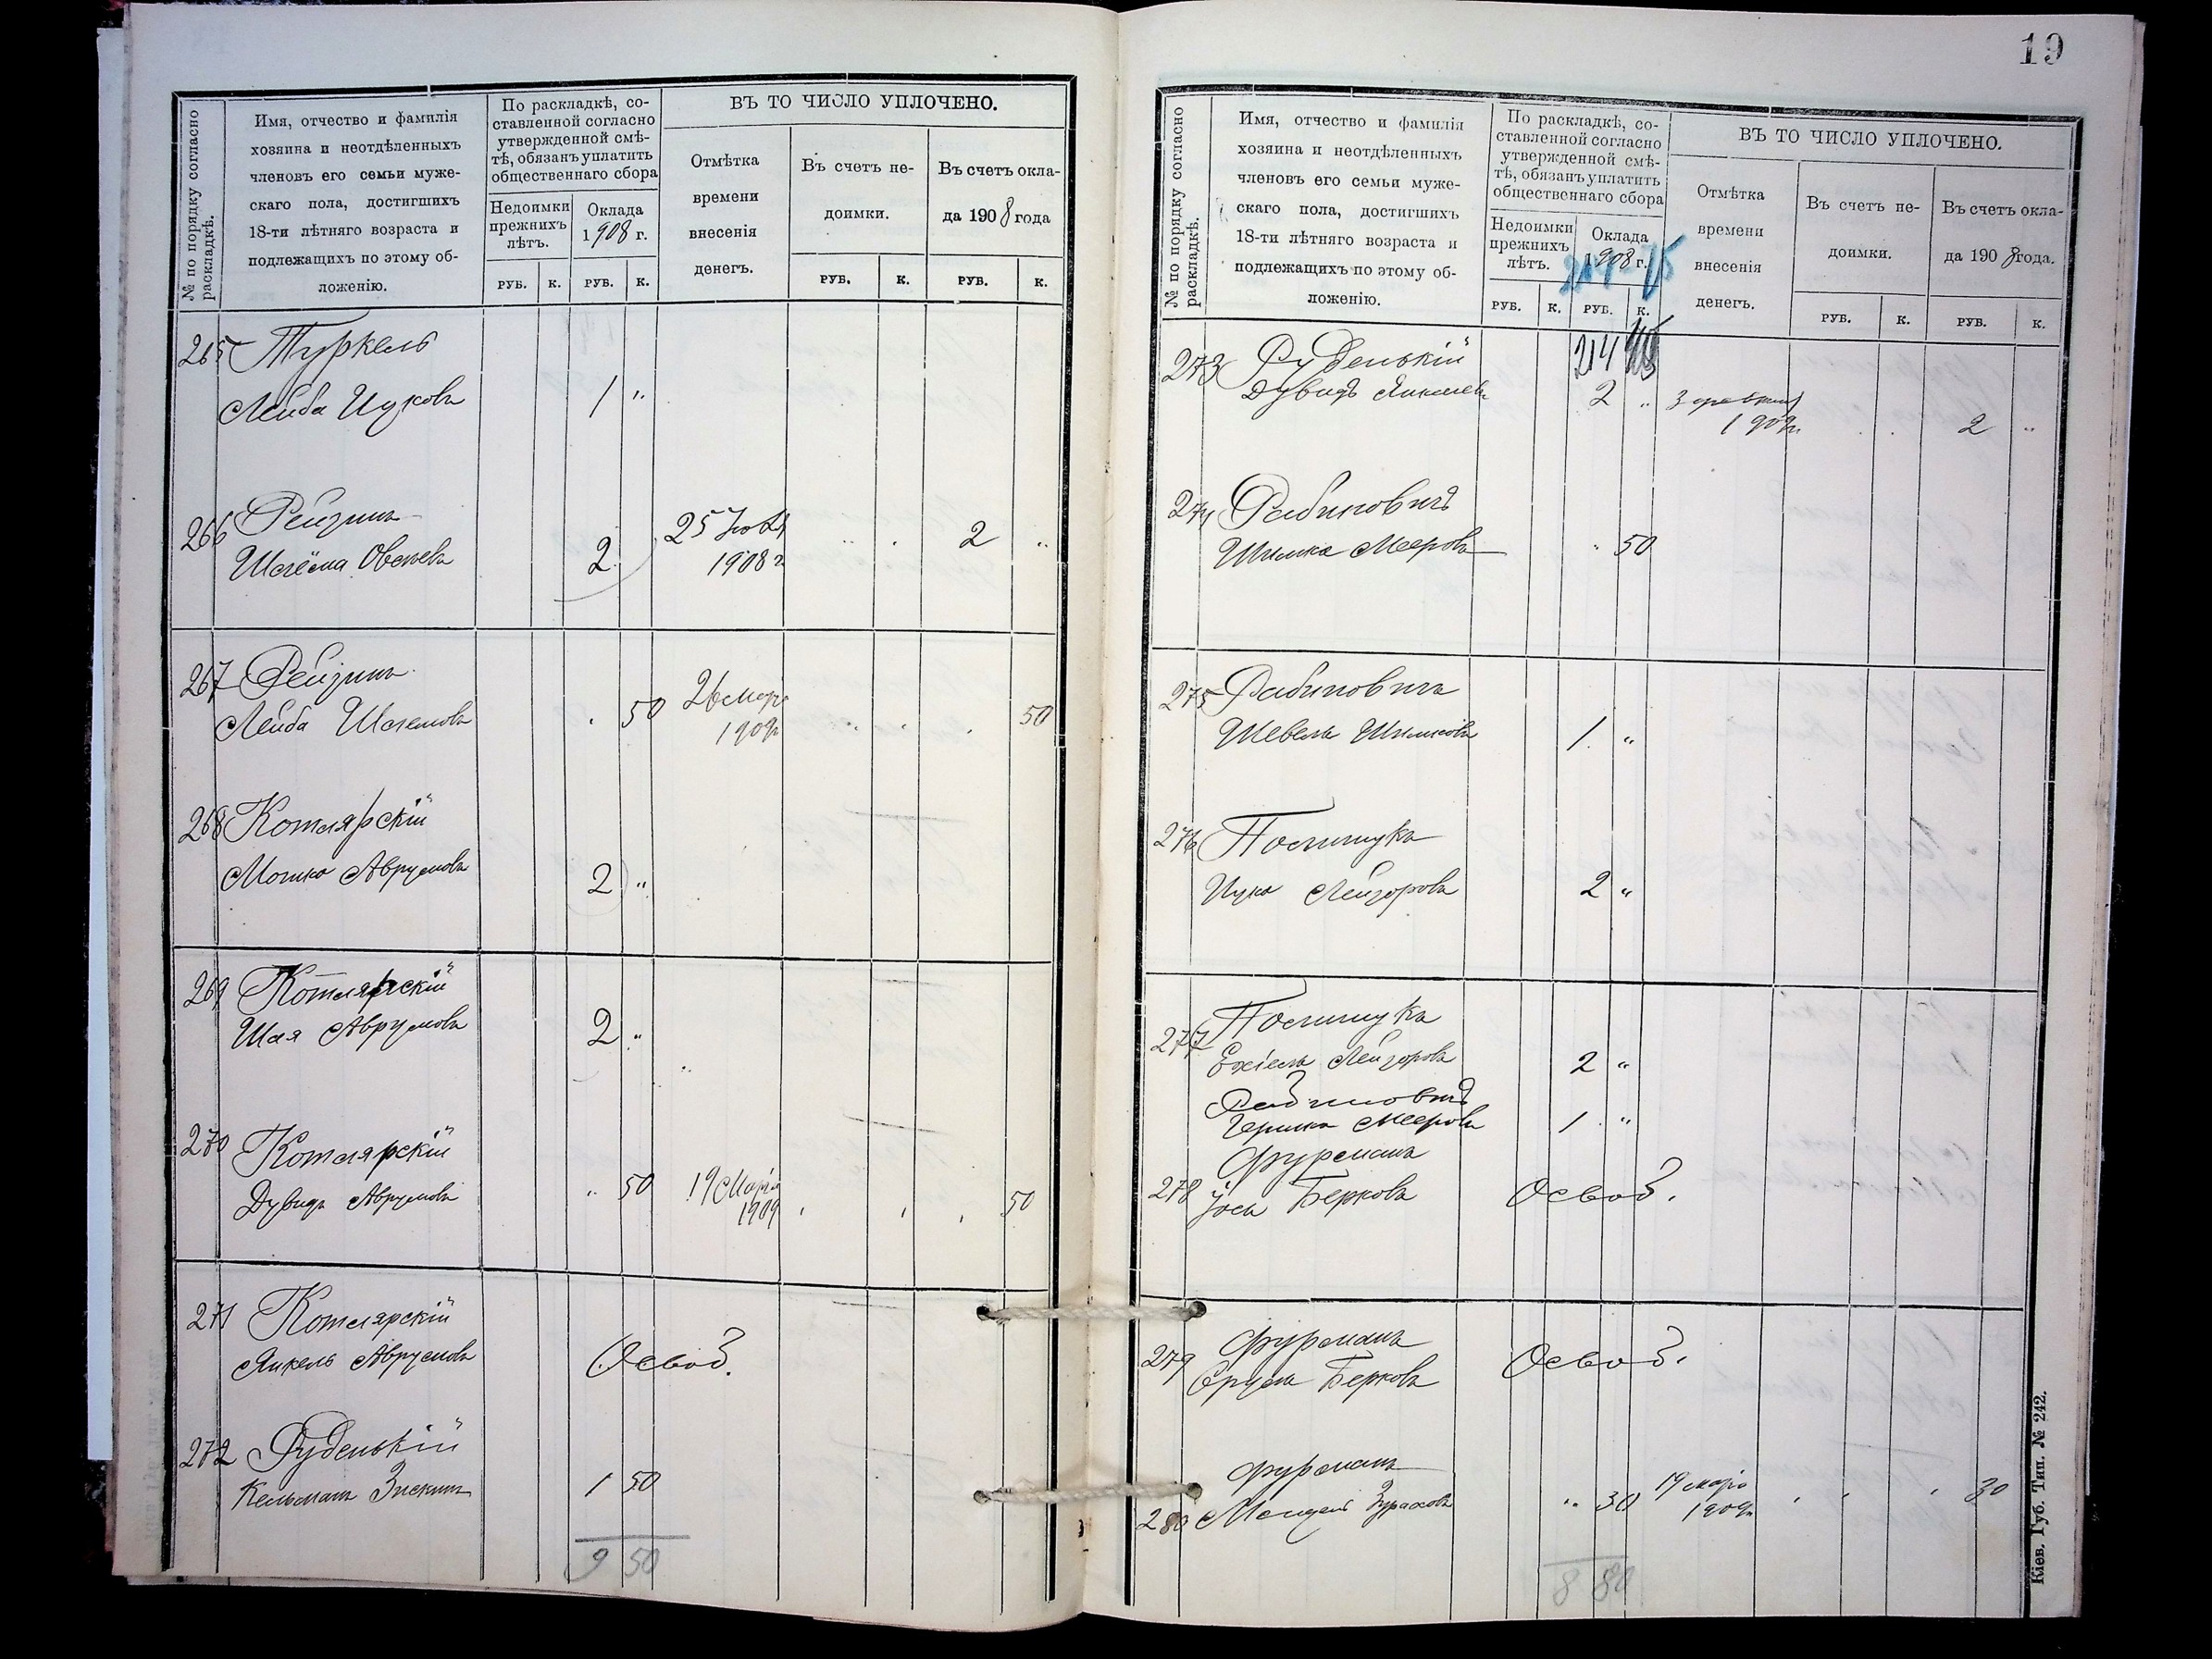 19
№ по порядку согласно раскладкѣ.
Имя, отчество и фамилія
хозяина и неотдѣленныхъ
членовъ его семьи муже-
скаго пола, достигшихъ
18-ти лѣтняго возраста и
подлежащихъ по этому об-
ложенію.
По раскладкѣ, со-
ставленной согласно
утвержденной смѣ-
тѣ, обязанъ уплатить
общественнаго сбора
Недоимки
прежнихъ
лѣтъ.
Оклада
1908 г.
ВЪ ТО ЧИСЛО УПЛОЧЕНО.
Отмѣтка
времени
внесенія
денегъ.
Въ счетъ не-
доимки.
Въ счетъ окла-
да 1908 года
РУБ. К. РУБ. К. РУБ. К. РУБ. К.
265 Туркель
Лейба Ицковъ 1 "
266 Рейзинъ
2 25 1908 г 2 "
267 Рейзинъ
Лейба " 50 26 Мар 1909 50
268 Котлярскій
Мошко Аврумовъ 2 "
269 Котлярскій
Шая Аврумовъ 2 "
270 Котлярскій
Дувидъ Аврумовъ " 50 19 Марта 1909 50
271 Котлярскій
Янкель Аврумовъ Освоб.
272 Руденькій
Кельманъ 1 50
9 50
№ по порядку согласно раскладкѣ.
Имя, отчество и фамилія
хозяина и неотдѣленныхъ
членовъ его семьи муже-
скаго пола, достигшихъ
18-ти лѣтняго возраста и
подлежащихъ по этому об-
ложенію.
По раскладкѣ, со-
ставленной согласно
утвержденной смѣ-
тѣ, обязанъ уплатить
общественнаго сбора
Недоимки
прежнихъ
лѣтъ.
Оклада
1908 г.
ВЪ ТО ЧИСЛО УПЛОЧЕНО.
Отмѣтка
времени
внесенія
денегъ.
Въ счетъ не-
доимки.
Въ счетъ окла-
да 1908 года.
РУБ. К. РУБ. К. РУБ. К. РУБ. К.
214
273 Руденькій
Дувидъ 2 " 1909 г. 2 "
274 Рабиновичъ
Шимка Мееровъ " 50
275 Рабиновичъ
Шевель Шимковъ 1 "
276 Полищукъ
Ицко Лейзоровъ 2 "
277 Полищукъ
Ехіель Лейзоровъ 2 "
Рабиновичъ
Гершко Мееровъ 1 "
Фурманъ
278 Іось Берковъ Освоб.
279 Фурманъ
Сруль Берковъ Освоб.
Фурманъ
280 " 30 19 марта 1909 г. 30
8 80
Кіев. Губ. Тип. № 242.